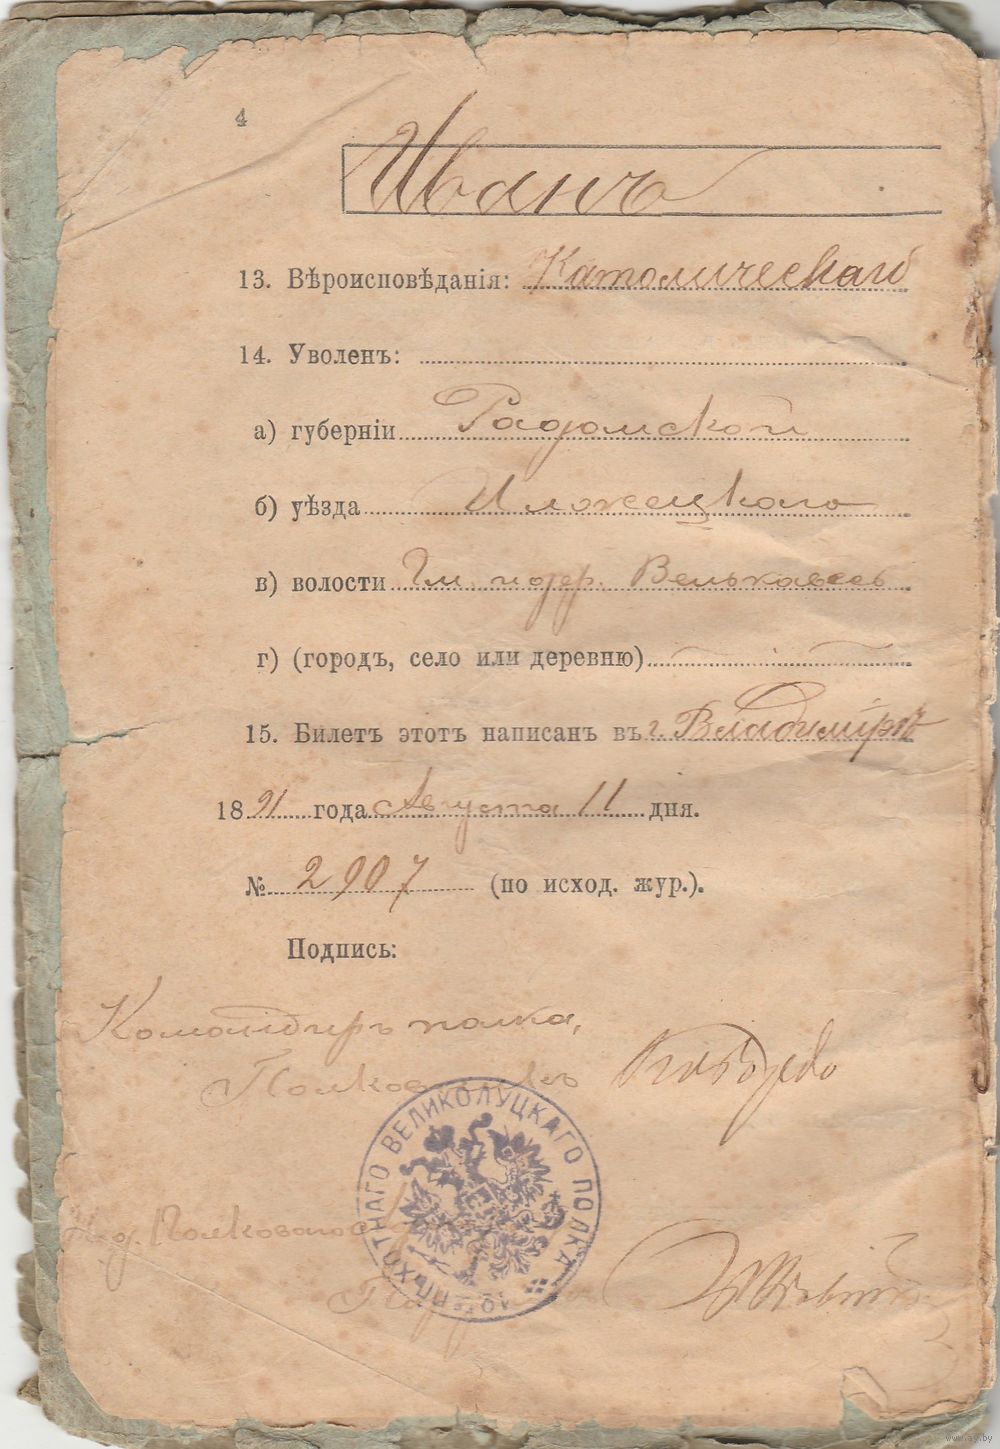 4
Иванъ
13. Вѣроисповѣданія: Католическаго
14. Уволенъ:
а) губерніи Радомской
б) уѣзда Иложецкаго
в) волости Гм. и дер. Велькавесь
г) (городъ, село или деревню)
15. Билетъ этотъ написанъ въ г. Владимірѣ
1891 года Августа 11 дня.
№ 2907 (по исход. жур.).
Подпись:
Командиръ полка,
Полковникъ
ПѢХОТНАГО ВЕЛИКОЛУЦКАГО ПОЛКА
Полковаго
www.ay.by